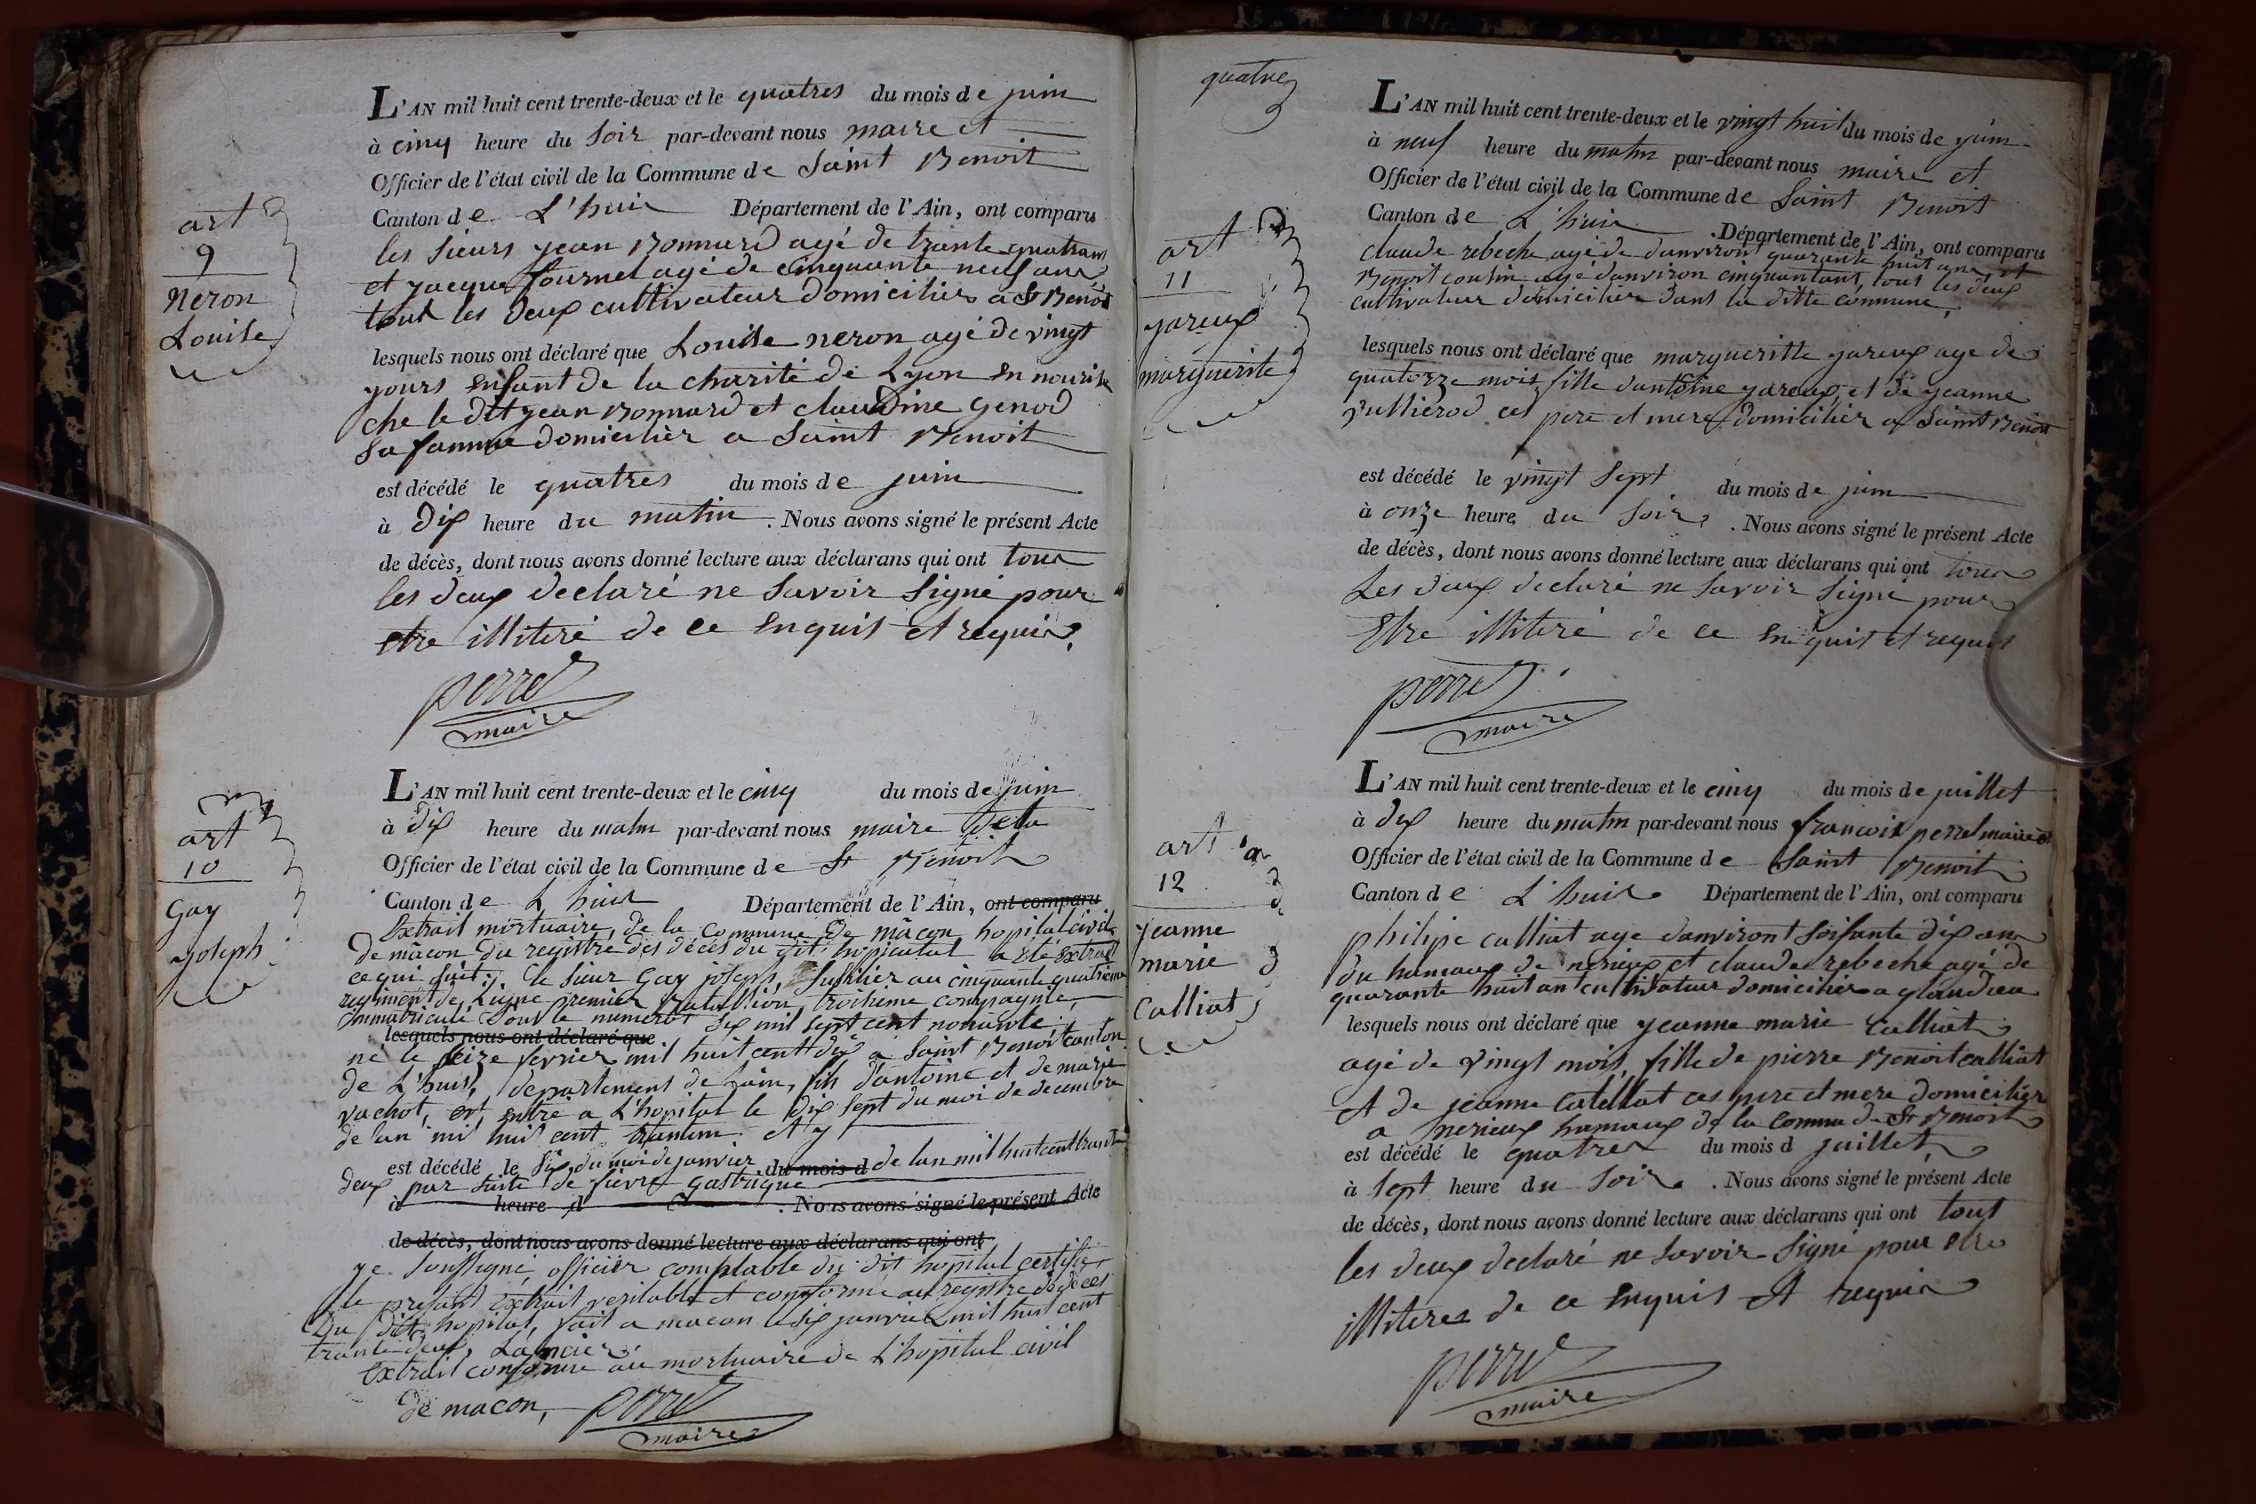 art
9
Neron
Louise
L'AN mil huit cent trente-deux et le quatres du mois de juin
à cinq heure du soir par-devant nous maire et
Officier de l'état civil de la Commune de Saint Benoit
Canton de L'huis Département de l'Ain, ont comparu
les sieurs jean Bonnard agé de trante quatrans
et jacque fournet agé de cinquante neuf ans
tout les deux cultivateur domicilier a St Benoit
lesquels nous ont déclaré que Louise neron agé de vingt
yours enfant de la charité de Lyon en nourise
che le dit jean Bonnard et claudine genod
sa famme domicilier a saint Benoit
est décédé le quatres du mois de juin
à dix heure du matin. Nous avons signé le présent Acte
de décès, dont nous avons donné lecture aux déclarans qui ont tous
les deux declaré ne savoir signé pour
etre illiteré de ce enquis et requis.
perret
maire
art
10
Gay
joseph
L'AN mil huit cent trente-deux et le cinq du mois de juin
à dix heure du matin par-devant nous maire de la
Officier de l'état civil de la Commune de St Benoit
Canton de L'huis Département de l'Ain, ont comparu
Extrait mortuaire, de la commune de mâcon hopital civil
de mâcon du registre des décès du dit hopital a été extrait
ce qui suit. le sieur Gay joseph, fusilier au cinquante quatrieme
regiment de Ligne premier Bataillion troisieme compagnie,
immatriculé sous le numerot six mil sept cent nonante,
lesquels nous ont déclaré que
né le seize fevrier mil huit cent dix a saint Benoit canton
de L'huis, departement de l'ain, fils d'antoine et de marie
vachot, est entré a L'hopital le dix sept du moi de decembre
de lan mil huit cent trantun. et y
est décédé le six, du moi de janvier du mois d de lan mil huit cent trante
deux par suite de fievre gastrique
à heure d . Nous avons signé le présent Acte
de décès, dont nous avons donné lecture aux déclarans qui ont
je soussigné, officier comptable du dit hopital certifie
le present extrait veritable et conforme au registre de deces
du dit hopital, fait a macon le six janvier mil huit cent
trante deux,
extrait conforme au mortuaire de L'hopital civil
de macon, perret
maire
quatre
art
11
jareux
marguerite
L'AN mil huit cent trente-deux et le vingt huit du mois de juin
à neuf heure du matin par-devant nous maire et
Officier de l'état civil de la Commune de Saint Benoit
Canton de L'huis Département de l'Ain, ont comparu
claude rebeche agé de d'anviront quarante huit ans et
Benoit cousin agé d'anviron cinquantant, tous les deux
cultivateur domicilier dans la ditte commune,
lesquels nous ont déclaré que margueritte jareux age de
quatorze mois, fille d'antoine jareux, et de jeanne
vullierod ces pere et mere domicilier a Saint Benoit
est décédé le vingt sept du mois de juin
à onze heure du soir. Nous avons signé le présent Acte
de décès, dont nous avons donné lecture aux déclarans qui ont tous
Les deux declaré ne savoir signé pour
Etre illiteré de ce enquit et requis
perret
maire
art
12
jeanne
marie
Calliat
L'AN mil huit cent trente-deux et le cinq du mois de juillet
à dix heure du matin par-devant nous francois perret maire et
Officier de l'état civil de la Commune de Saint Benoit
Canton de L'huis Département de l'Ain, ont comparu
philipe calliat age d'anviront soisante dix an
du hamaux de nerieux et claude rebeche agé de
quarante huit an cultivateur domicilier a glandieu
lesquels nous ont déclaré que jeanne marie Calliat
agé de vingt mois, fille de pierre Benoit calliat
et de jeanne catellat ces pere et mere domicilier
a nerieux hamaux de la comune de St Benoit
est décédé le quatres du mois d juillet
à sept heure du soir. Nous avons signé le présent Acte
de décès, dont nous avons donné lecture aux déclarans qui ont tout
les deux declaré ne savoir signé pour etre
illiteres de ce enquis et requis
perret
maire